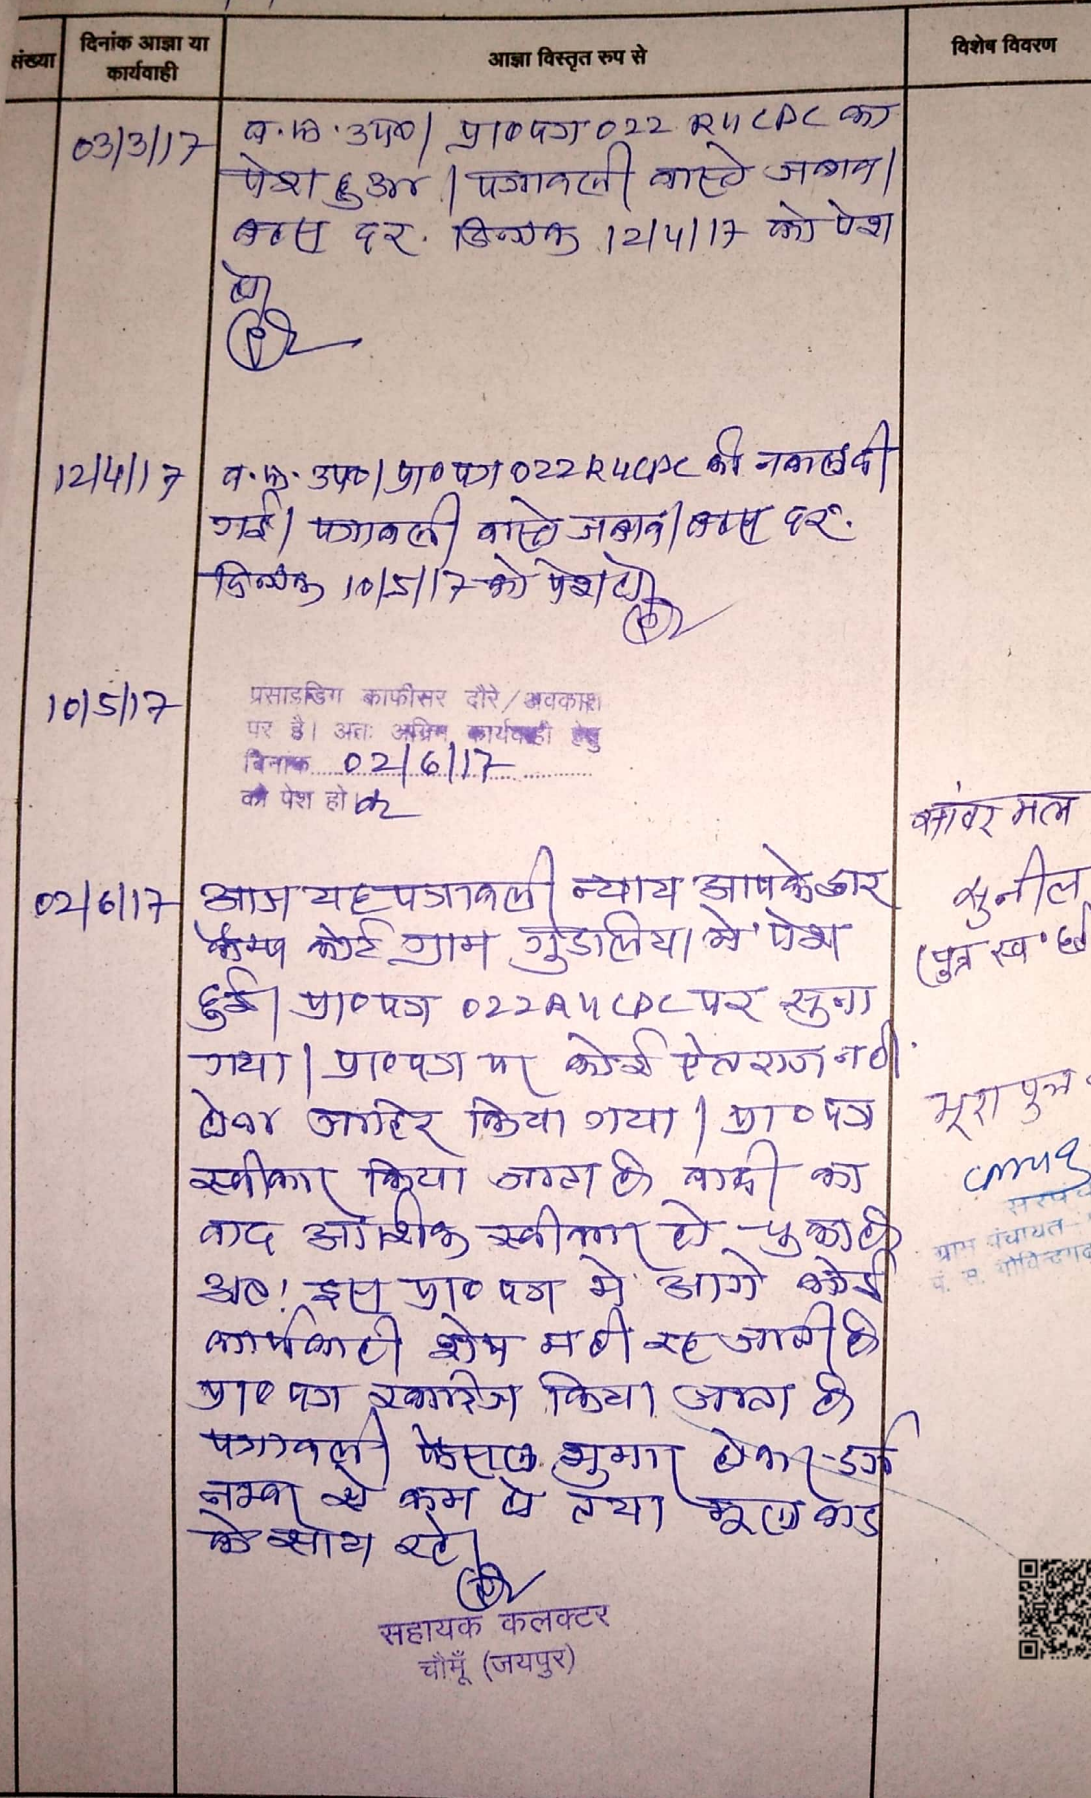 संख्या
दिनांक आज्ञा या
कार्यवाही
आज्ञा विस्तृत रुप से
विशेष विवरण
03/3/17
व.फ. उप०। प्रा०पत्र 022 R4 CPC का
पेश हुआ। पत्रावली वास्ते जवाब।
बहस दर. दिनांक 12/4/17 को पेश
हो।
12/4/17
व.फ. उप०। प्रा०पत्र 022 R4 CPC की नकल दी
गई। पत्रावली वास्ते जवाब। बहस दर.
दिनांक 10/5/17 को पेश हो।
10/5/17
प्रसाइडिंग आफीसर दौरे/अवकाश
पर है। अतः अग्रिम कार्यवाही हेतु
दिनांक 02/6/17
को पेश हो।
02/6/17
आज यह पत्रावली न्याय आपके द्वार
केम्प कोर्ट ग्राम गुडालिया मे पेश
हुई। प्रा०पत्र 022 R4 CPC पर सुना
गया। प्रा०पत्र पर कोई ऐतराज नही
होना जाहिर किया गया। प्रा०पत्र
स्वीकार किया जाता है वादी का
वाद आंशिक स्वीकार हो चुका है
अतः इस प्रा०पत्र मे आगे कोई
कार्यवाही शेष नही रह जाती है
प्रा०पत्र खारिज किया जाता है
पत्रावली फैसल शुमार होकर दर्ज
नम्बर से कम हो तथा मूल वाद
के साथ रहे।
सहायक कलक्टर
चौमूँ (जयपुर)
सांवर मल
सुनील
(पुत्र स्व०
भूरा पुत्र
सरपंच
ग्राम पंचायत
पं. स. गोविन्दगढ